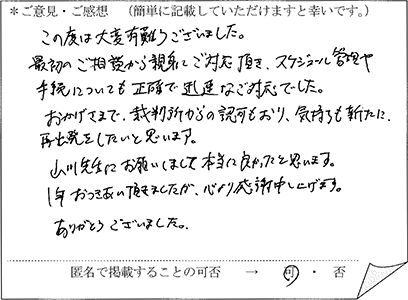 *ご意見・ご感想　(簡単に記載していただけますと幸いです。)
この度は大変有難うございました。
最初のご相談から親身にご対応頂き、スケジュール管理や
手続についても正確で迅速なご対応でした。
おかげさまで、裁判所からの認可もおり、気持ちも新たに、
再出発をしたいと思います。
山川先生にお願いしまして本当に良かったと思います。
1年おつきあい頂きましたが、心より感謝申し上げます。
ありがとうございました。
匿名で掲載することの可否　→　可・否